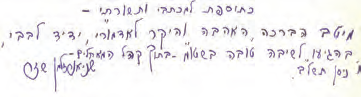 כתוספת למכתבי ותשורתי –
מיטב הברכה, האהבה והיקר לאדמו"ר, ידיד לבבי,
בהגיעו לשיבה טובה בשטו"מ – בתוך קהל המאחלים –
ניסן תשל"ב.